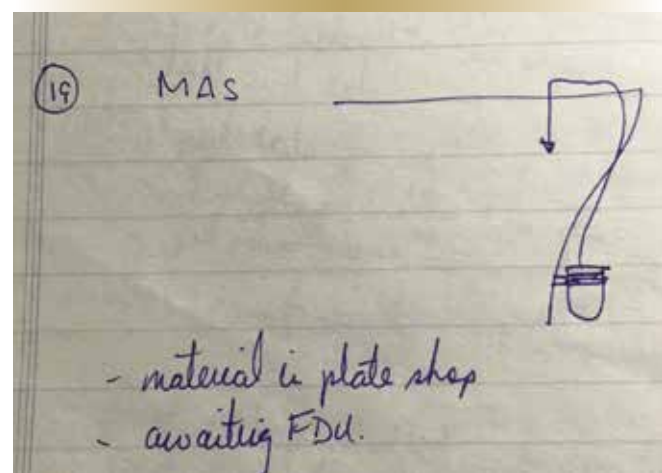 19 MAS
- material in plate shop
- awaiting FDU.